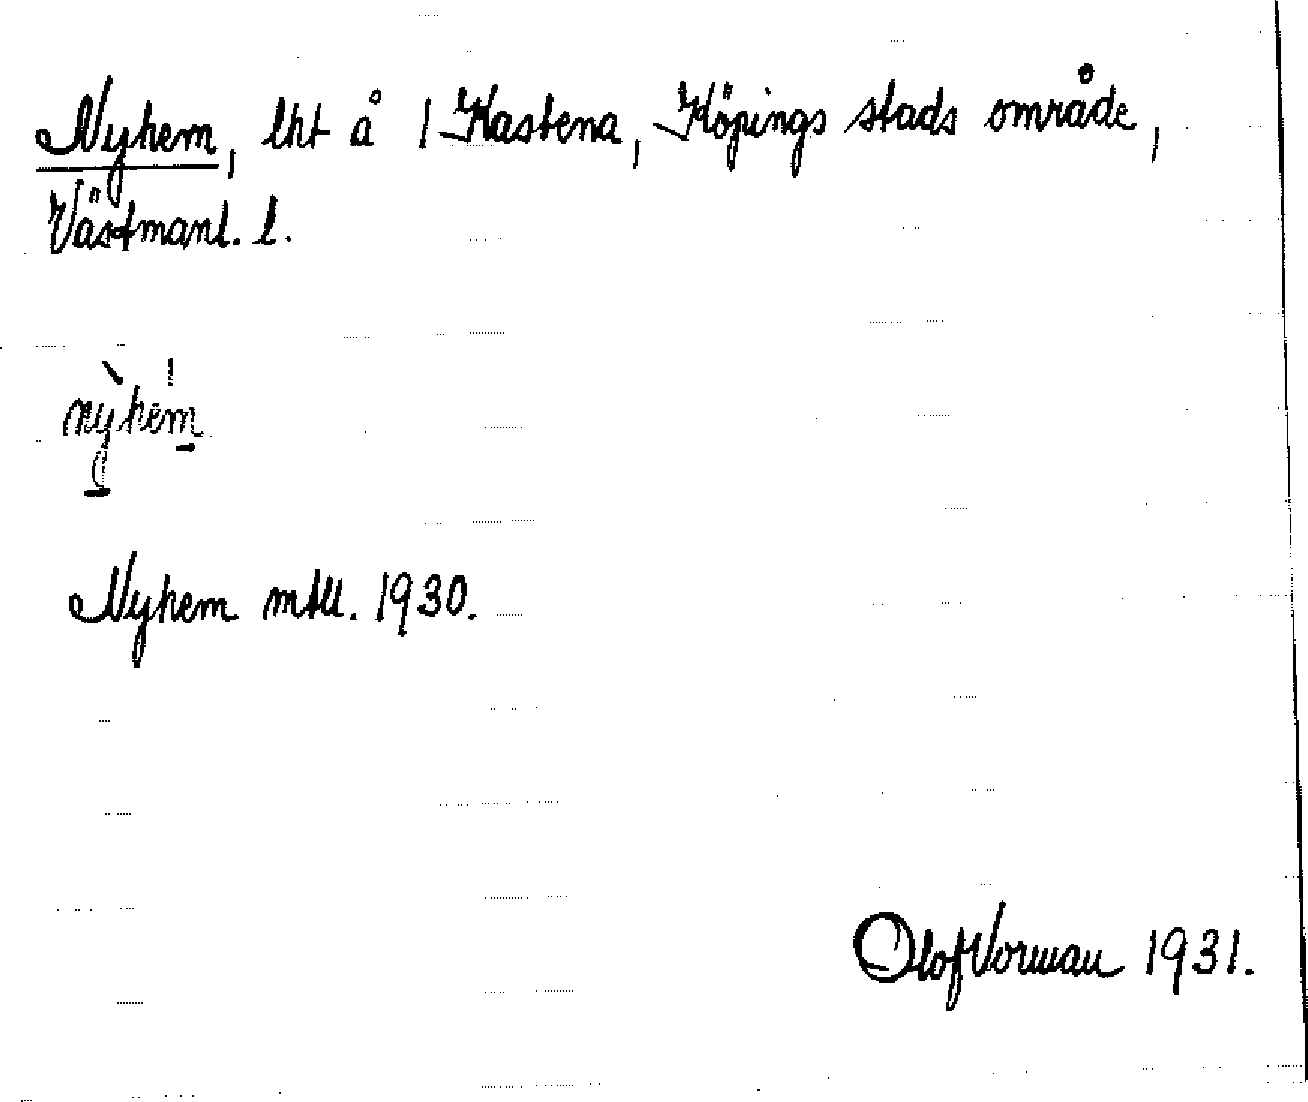 Nyhem, lht å 1 Kastena, Köpings stads område,
Västmanl. l.
nỳhem
Nyhem mtll. 1930.
Olof Vorman 1931.